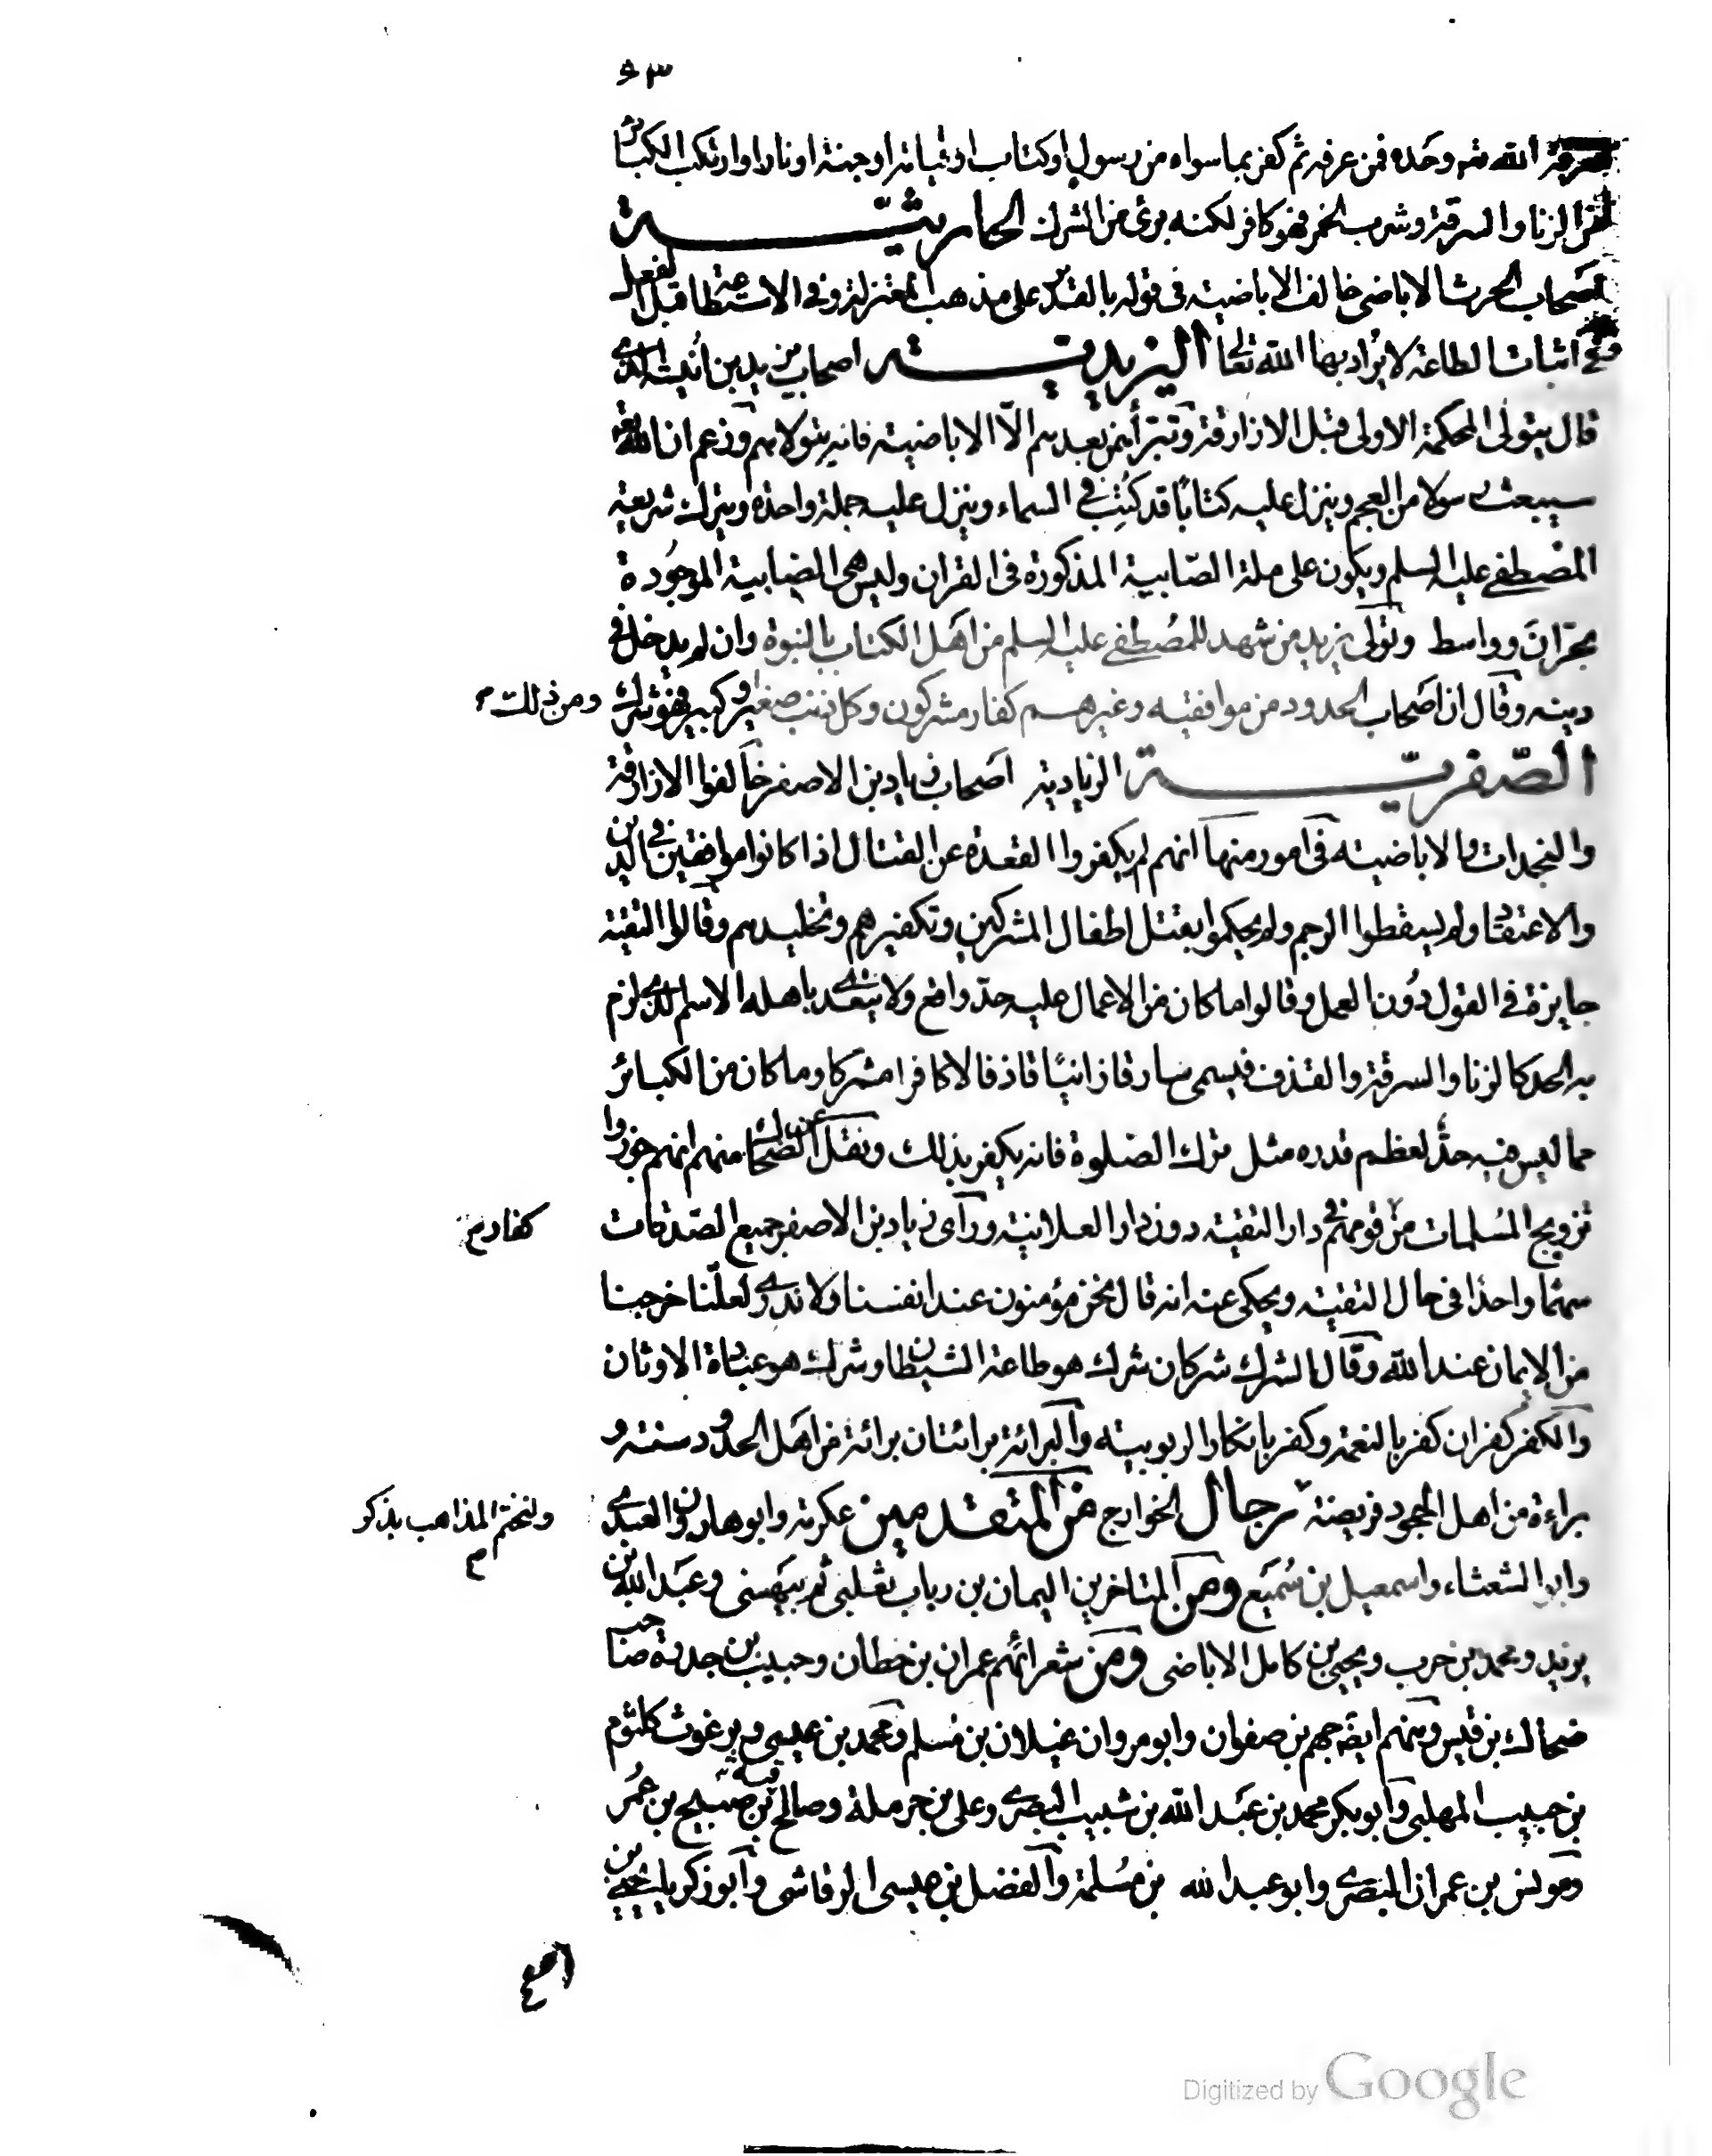 ٥٣
معرفة الله تعه وحده فمن عرفه ثم كفر بما سواه من رسول او كتاب او قيامة او جنة او نار او ارتكب الكبائر
من الزنا والسرقة وشرب الخمر فهو كافر لكنه برئ من الشرك الحارثية
اصحاب الحرث الاباضي خالف الاباضية في قوله بالقدر على مذهب المعتزلة وفي الاستطاعة قبل الفعل
وفي اثبات طاعة لا يراد بها الله تعالى اليزيدية اصحاب يزيد بن انيسة الذي
قال بتولى المحكمة الاولى قبل الازارقة وتبرأ ممن بعدهم الّا الاباضية فانه يتولاهم وزعم ان الله تعه
سيبعث رسولا من العجم وينزل عليه كتابًا قد كُتِبَ في السماء وينزل عليه جملة واحدة ويترك شريعة
المصطفى عليه السلم ويكون على ملة الصّابية المذكورة في القران وليس هي الصابية الموجُودة
بحرّانَ وواسط وتولى يزيد من شهد للمُصْطفى عليه السلم من اهل الكتاب بالنبوة وان لم يدخل في
دينه وقال ان اصحاب الحدود من موافقيه وغيرهم كفار مشركون وكل ذنب صغير او كبير فهو شرك
ومن ذلك م
الصّفريّة الزيادية اصحاب زياد بن الاصفر خالفوا الازارقة
والنجدات والاباضية في امور منها انهم لم يكفروا القعدة عن القتال اذا كانوا موافقين في الدين
والاعتقاد ولم يسقطوا الرجم ولم يحكموا بقتل اطفال المشركين وتكفيرهم وتخليدهم وقالوا التقية
جايزة في القول دُون العمل وقالوا ما كان من الاعمال عليه حدّ واقع ولا يتعدى باهله الاسم الذي لزم
به الحد كالزنا والسرقة والقذف فيسمى سارقا زانيًا قاذفا لا كافرا مشركا وما كان من الكبائر
مما ليس فيه حدٌّ لعظم قدره مثل ترك الصلوة فانه يكفر بذلك ونقل عن الضحاك منهم انهم جوزوا
تزويج المُسلمات من قومهم في دار التقية دون دار العلانية ورآى زياد بن الاصفر جميع الصّدقات
كفارهم
سهمًا واحدًا في حال التقية ويحكى عنه انه قال نحن مؤمنون عند انفسنا ولا ندري لعلّنا خرجنا
من الايمان عند الله وقال الشرك شركان شرك هو طاعة الشيطان وشرك هو عبادة الاوثان
والكفر كفران كفر بالنعمة وكفر بانكار الربوبية والبرائة برائتان برائة من اهل الحدود سنة و
براءة من اهل الجحود فريضة رجال الخوارج من المتقدمين عكرمة وابو هارون العبدي
ولنختم المذاهب بذكر
م
وابو الشعثاء واسمعيل بن سُمَيع ومن المتاخرين اليمان بن رباب ثعلبى ثم بيهسى وعبد الله بن
يزيد ومحمد بن حرب ويحيى بن كامل الاباضى ومن شعرائهم عمران بن حطان وحبيب بن جدرة صاحب
ضحاك بن قيس ومنهم ايضه جهم بن صفوان وابو مروان غيلان بن مُسلم ومحمد بن عيسى وبرغوث كلثوم
بن حبيب المهلبى وابو بكر محمد بن عبد الله بن شبيب البصرى وعلى بن حرملة وصالح قبة بن صبيح بن عمر
ومونس بن عمران البصرى وابو عبد الله بن مُسلمة والفضل بن عيسى الرقاشى وابو زكريا يحيى بن